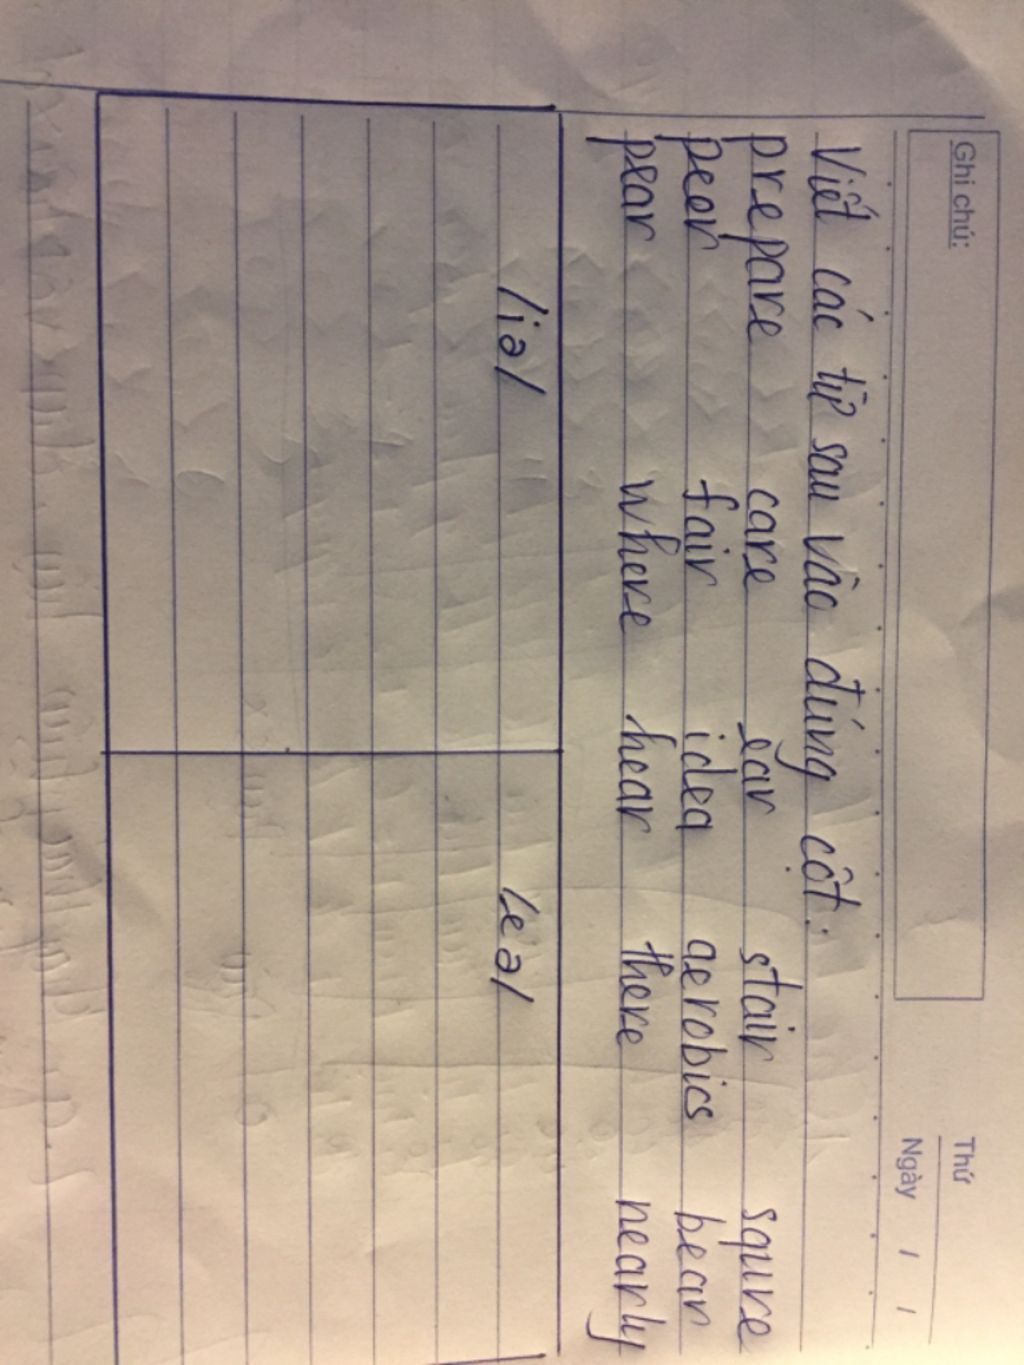 Ghi chú:
Thứ
Ngày / /
Viết các từ sau vào đúng cột:
prepare care ear stair squire
peer fair idea aerobics bear
pear where hear there nearly
/iə/ /eə/